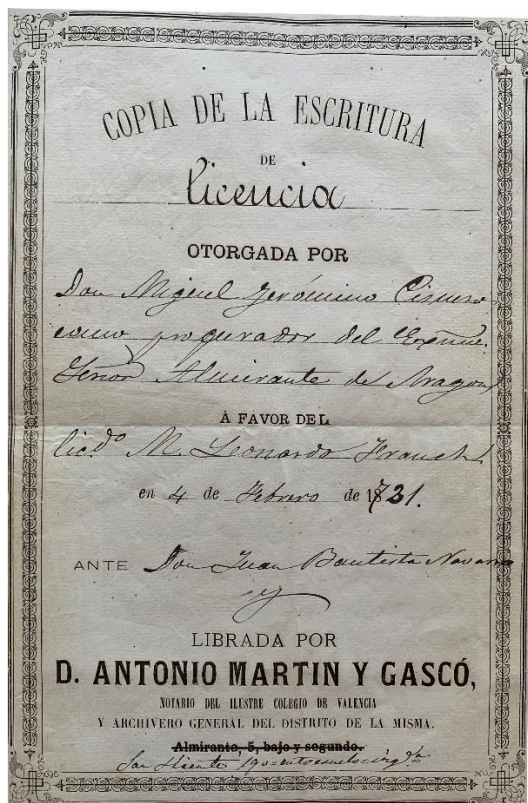 COPIA DE LA ESCRITURA
DE
licencia
OTORGADA POR
Don Miguel Jerónimo Cisneros
como procurador del Exmo.
Señor Almirante de Aragon
Á FAVOR DEL
licdo M. Leonardo Franch
en 4 de Febrero de 1731.
ANTE Don Juan Bautista Navarro
y
LIBRADA POR
D. ANTONIO MARTIN Y GASCÓ,
NOTARIO DEL ILUSTRE COLEGIO DE VALENCIA
Y ARCHIVERO GENERAL DEL DISTRITO DE LA MISMA.
Almirante, 5, bajo y segundo.
San Vicente 190 entresuelo